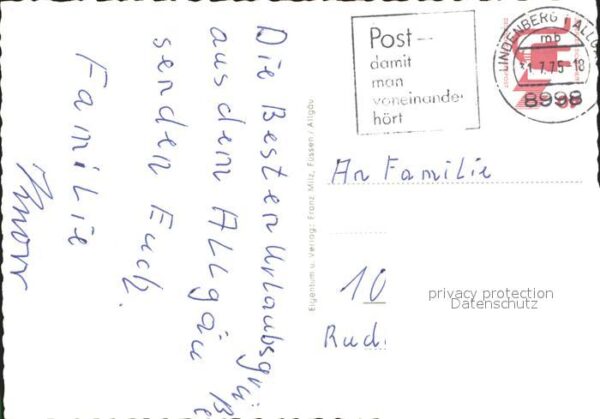 Die Besten Urlaubsgrü
aus dem Allgäu
senden Euch
Familie
Eigentum u. Verlag: Franz Milz, Füssen / Allgäu
Post –
damit
man
voneinander
hört
LINDENBERG
mb
1.7.75-18
8998
An Familie
10
Rud.
privacy protection
Datenschutz